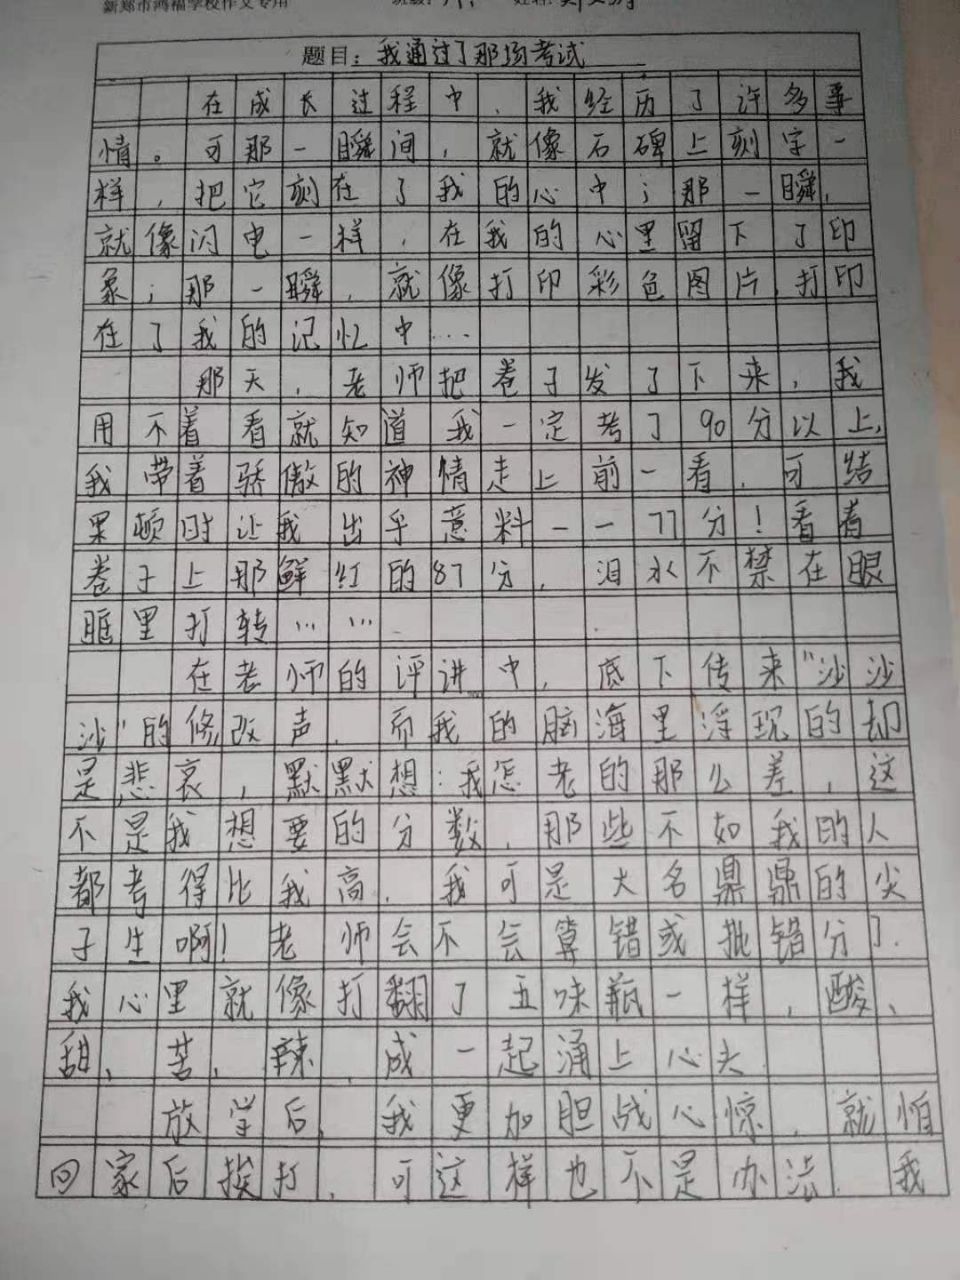 新郑市鸿福学校作文专用
题目：我通过了那场考试
在成长过程中，我经历了许多事
情。可那一瞬间，就像石碑上刻字一
样，把它刻在了我的心中；那一瞬，
就像闪电一样，在我的心里留下了印
象；那一瞬，就像打印彩色图片，打印
在了我的记忆中…
那天，老师把卷子发了下来，我
用不着看就知道我一定考了90分以上，
我带着骄傲的神情走上前一看，可结
果顿时让我出乎意料——77分！看着
卷子上那鲜红的87分，泪水不禁在眼
眶里打转……
在老师的评讲中，底下传来"沙沙
沙"的修改声，而我的脑海里浮现的却
是悲哀，默默想：我怎老的那么差，这
不是我想要的分数，那些不如我的人
都考得比我高，我可是大名鼎鼎的尖
子生啊！老师会不会算错或批错分了.
我心里就像打翻了五味瓶一样，酸、
甜、苦、辣，成一起涌上心头
放学后，我更加胆战心惊，就怕
回家后挨打，可这样也不是办法. 我